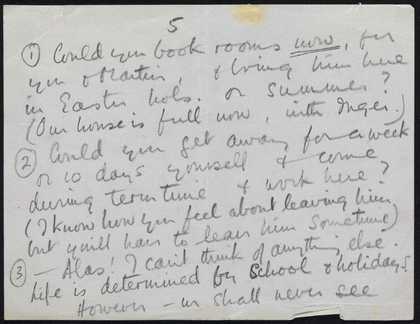 5
① Could you book rooms now, for
you & Martin, & bring him here
in Easter hols. or Summer?
(Our house is full now, with Inger.)
② Could you get away for a week
or 10 days yourself & come
during term time & work here?
(I know how you feel about leaving him,
but you'll have to leave him sometime)
③ — Alas! I can't think of anything else.
Life is determined by School & holidays.
However — we shall never see